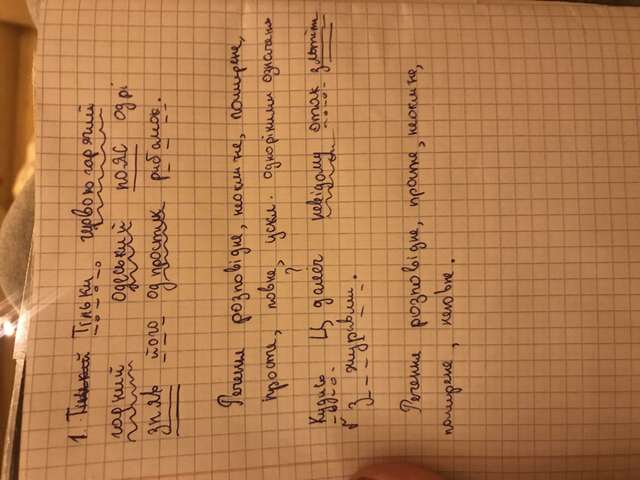 1. Тільки, щовою гарячий
гарний одеський пояс од рі
зняв його од простих риб амой.
Речення розповідне, неокличне, поширене,
просте, повне, ускл. однорідними означення
Кудись Ц далеч невідому отак злетіти
З журавлі.
Речення розповідне, просте, неокличне,
поширене, неповне.